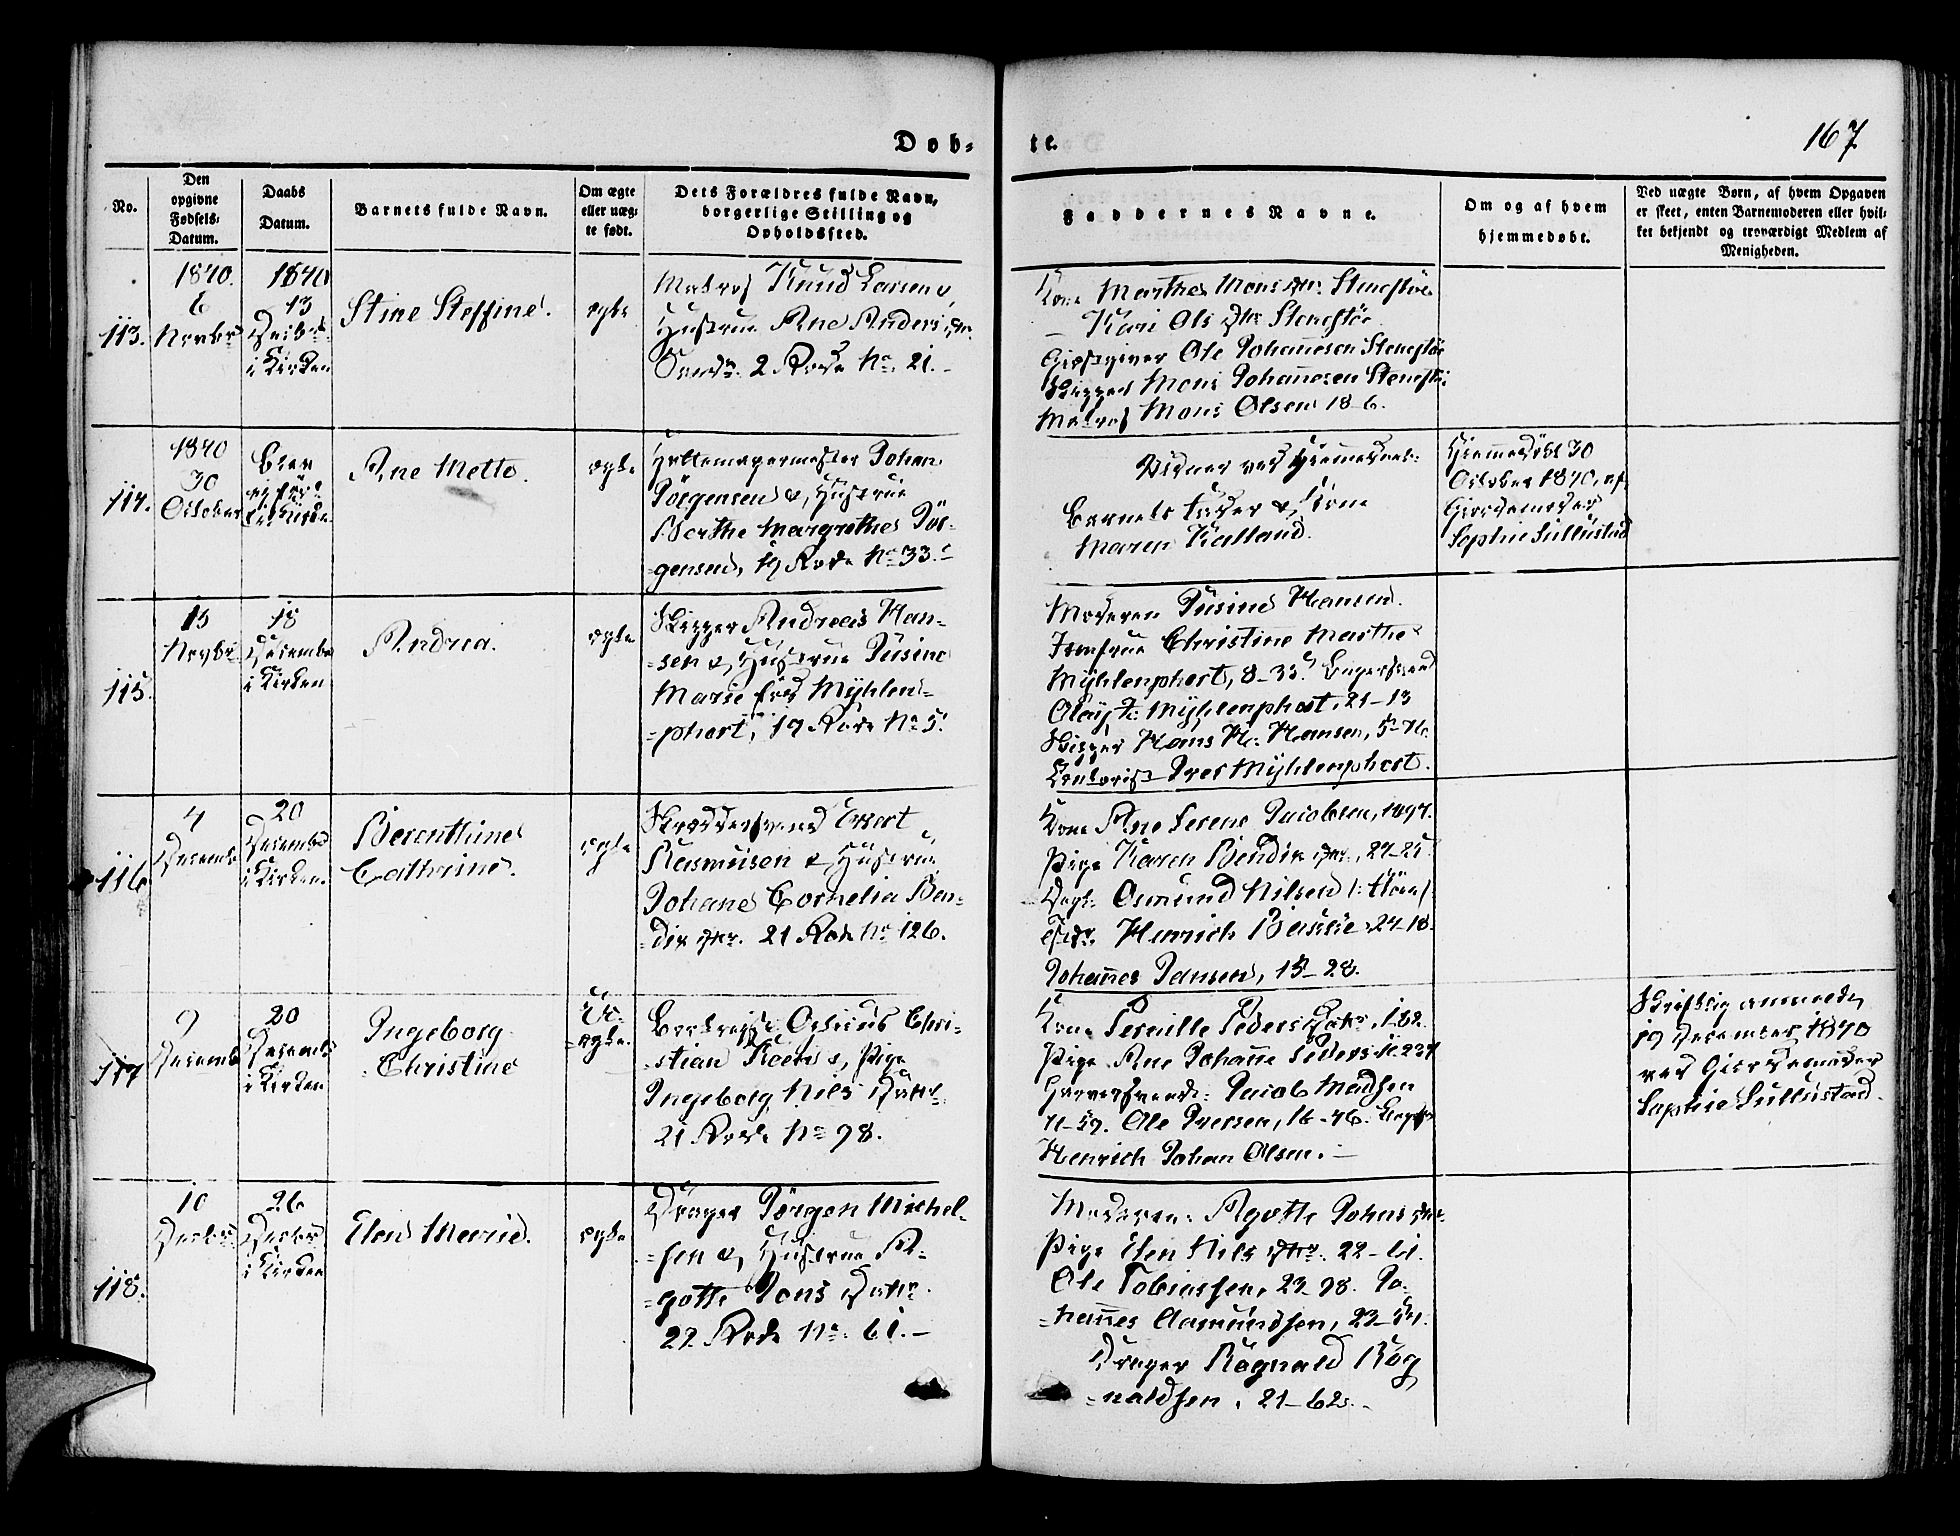 Døb-
te.
167
No.
Den opgivne Fødsels-Datum.
Daabs Datum.
Barnets fulde Navn.
Om ægte eller uægte født.
Dets Forældres fulde Navn, borgerlige Stilling og Opholdssted.
Faddernes Navne.
Om og af hvem hjemmedøbt.
Ved uægte Børn, af hvem Opgaven er skeet, enten Barnemoderen eller hvilket bekjendt og troværdigt Medlem af Menigheden.
113.
1840.
6
Novbr
1840
13
Decbr
i Kirken
Stine Steffine.
ægte
Matros Knud Larsen &
Hustrue Ane Anders Dtr.
2 Rode No. 21.
Kone Marthe Mons Dtr.
Kari Ols Dtr
Giestgiver Ole Johannesen
Skipper Mons Johannesen
Matros Mons Olsen 18-6.
114.
1840
30
October
Blev
ei
Ane Mette.
ægte
Pottemagermester Johan
Jörgensen & Hustrue
Berthe Margrethe Jör-
gensen, 19 Rode No 33.
Vidner ved Hjemmedaab:
Barnets Fader & Kone
Maren Kalland.
Hjemmedöbt 30
October 1840, af
Giordemoder
Sophie Sullustad
115.
15
Novbr
18
Decembr
i Kirken
Andrea.
ægte
Skipper Andreas Han-
sen & Hustrue Jusine
Marie föd Myhlen-
phort, 19 Rode No 5.
Moderen Jusine Hansen.
Jomfrue Christine Marthe
Myhlenphort, 8-33.
Myhlenphort, 21-13
Skipper Hans H. Hansen,
Iver Myhlenphort.
116
4
Decembr
20
Decembr
i Kirken.
Berenthine
Cathrine.
ægte
Skræddersvend Evert
Rasmusen & Hustrue
Johane Cornelia Ben-
dix Dtr. 21 Rode No 126.
Kone Ane Serene Jacobsen,
Pige Karen Bendix Dtr.,
Osmund Nilsen
Henrich
Johannes Jansen,
117
9
Decembr
20
Decembr
i Kirken
Ingeborg
Christine
Uægte.
Christian & Pige
Ingeborg Nils Datt.
21 Rode No 98.
Kone Pernille Peders Dattr,
Pige Ane Johanne Peders
Garversvend: Jacob Madsen
Ole Iversen, 16-46.
Henrich Johan Olsen.
Skriftlig anmeldt
19 December 1840
ved Giordemoder
Sophie Sullustad.
118.
10
Decbr
26
Decbr
i Kirken
Elen Marie.
ægte
Drager Jörgen Michel-
sen & Hustrue A-
gotte Jons Dattr.
22 Rode No. 61.
Moderen: Agotte Johns
Pige Elen Nils Dtr. 22-61.
Ole Tobiassen, 23-98. Jo-
hannes Aamundsen, 23-
Drager Rögnald Rög
naldsen, 21-62.